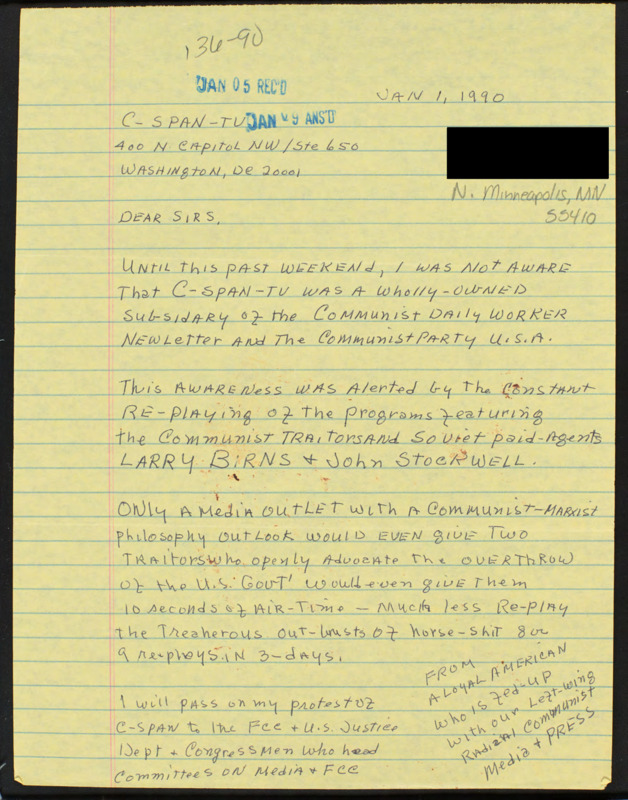 136-90
JAN 05 REC'D
JAN 1, 1990
C-SPAN-TV JAN 09 ANS'D
400 N CAPITOL NW/Ste 650
WASHINGTON, DC 20001
N. Minneapolis, MN
55410
DEAR SIRS,
UNTIL this PAST WEEKEND, I WAS NOT AWARE
That C-SPAN-TV WAS A Wholly-OWNED
SUBSIDARY of the COMMUNIST DAILY WORKER
NEWLetter AND The COMMUNIST PARTY U.S.A.
This AWARENESS WAS Alerted by the CONSTANT
RE-PLAYING of the Programs featuring
the COMMUNIST TRAITORS AND Soviet paid-Agents
LARRY BIRNS & John STOCKWELL.
ONLY A Media OUTLET WITH A COMMUNIST-MARXIST
Philosophy OUTLOOK WOULD EVEN GIVE TWO
TRAITORS who openly Advocate the OVERTHROW
of the U.S. GOVT' Would even GIVE Them
10 seconds of AIR-TIME - Much less Re-PLAY
the Treaherous out-busts of horse-shit for
9 re-plays in 3-days.
I will pass on my protest of
C-SPAN to the FCC & U.S. Justice
Dept & Congressmen who head
Committees ON Media & FCC
FROM
A LOYAL AMERICAN
who is fed-UP
with our Left-wing
Radical Communist
Media & PRESS